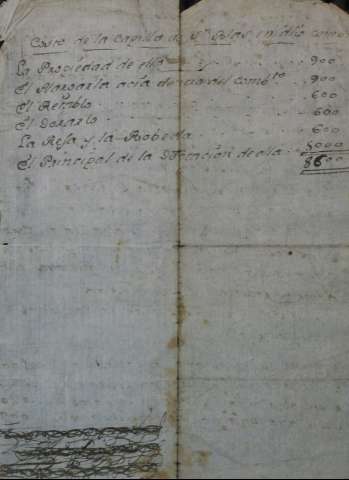 Costo de la Capilla de Sn Blas en dho
La Propiedad de ella 900
El Alargarla acia dentro del combto 900
El Retablo 600
El Dorarlo 600
La Rexa y la Bobeda 600
El Principal de la Dotacion de ella 5000
8600